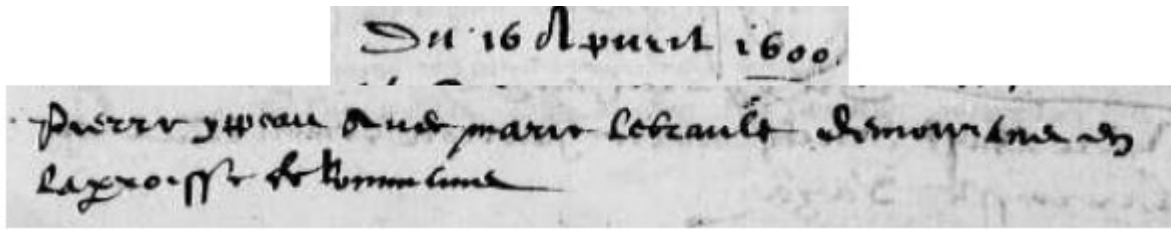 Du 16 Apvril 1600
Pierre ypeau avec marie Lebrault demourant en
La parroisse de